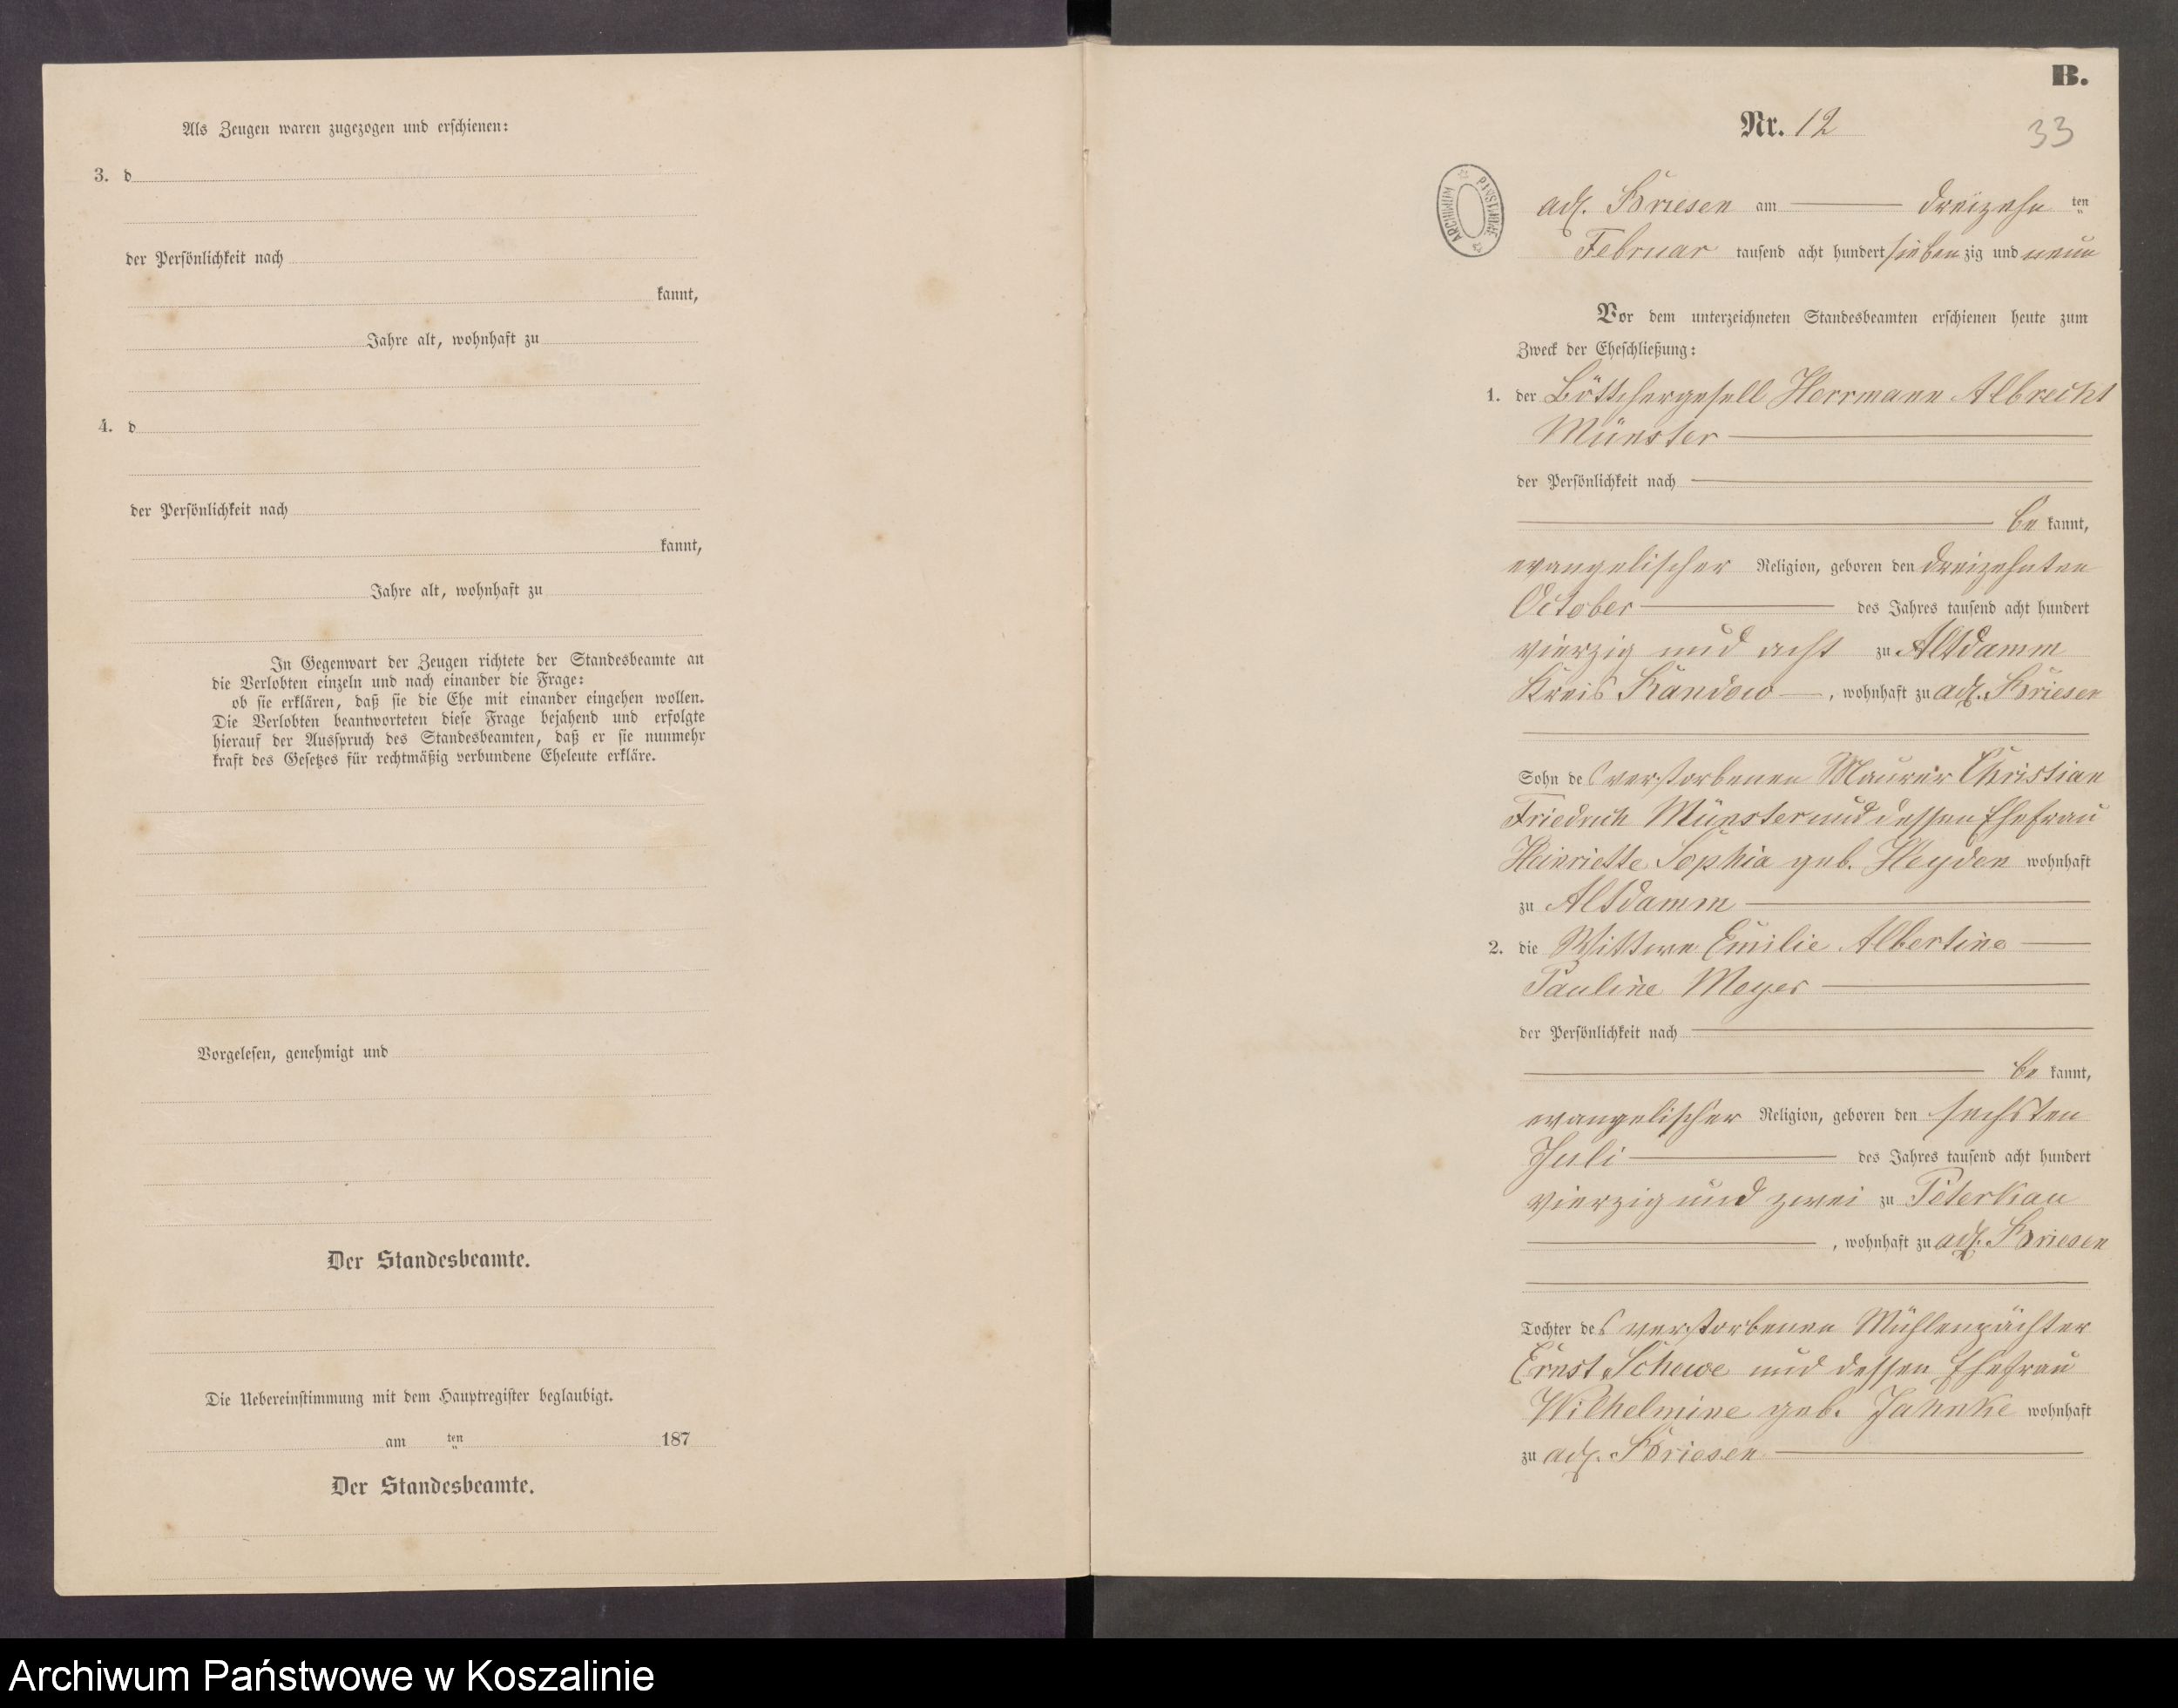 Als Zeugen waren zugezogen und erschienen:
3. d
der Persönlichkeit nach
kannt,
Jahre alt, wohnhaft zu
4. d
der Persönlichkeit nach
kannt,
Jahre alt, wohnhaft zu
In Gegenwart der Zeugen richtete der Standesbeamte an
die Verlobten einzeln und nach einander die Frage:
ob sie erklären, daß sie die Ehe mit einander eingehen wollen.
Die Verlobten beantworteten diese Frage bejahend und erfolgte
hierauf der Ausspruch des Standesbeamten, daß er sie nunmehr
kraft des Gesetzes für rechtmäßig verbundene Eheleute erkläre.
Vorgelesen, genehmigt und
Der Standesbeamte.
Die Uebereinstimmung mit dem Hauptregister beglaubigt.
am ten 187
Der Standesbeamte.
B.
Nr. 12
33
adl. Briesen am dreizehn ten
Februar tausend acht hundert sieben zig und neun
Vor dem unterzeichneten Standesbeamten erschienen heute zum
Zweck der Eheschließung:
1. der Böttchergesell Herrmann Albrecht
Münster
der Persönlichkeit nach
be kannt,
evangelischer Religion, geboren den dreizehnten
October des Jahres tausend acht hundert
vierzig und acht zu Altdamm
Kreis Randow, wohnhaft zu adl. Briesen
Sohn des verstorbenen Maurer Christian
Friedrich Münster und dessen Ehefrau
Heinriette Sophia geb. Heyden wohnhaft
zu Altdamm
2. die Wittwe Emilie Albertine
Pauline Meyer
der Persönlichkeit nach
be kannt,
evangelischer Religion, geboren den sechsten
Juli des Jahres tausend acht hundert
vierzig und zwei zu Peterkau
, wohnhaft zu adl. Briesen
Tochter des verstorbenen Mühlenpächter
Ernst Schewe und dessen Ehefrau
Wilhelmine geb. Jahnke wohnhaft
zu adl. Briesen
Archiwum Państwowe w Koszalinie